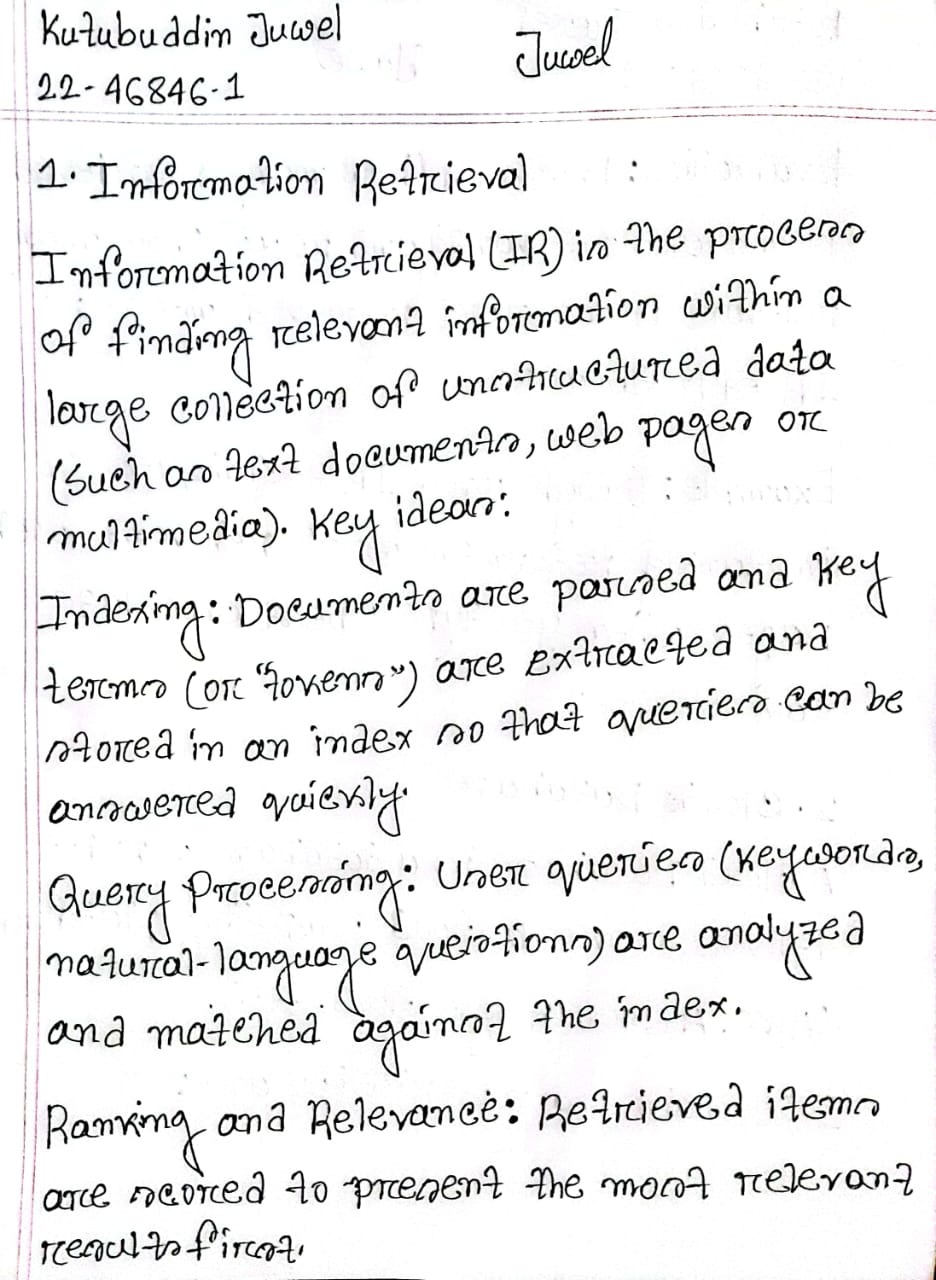 Kutubuddin Juwel
Juwel
22-46846-1
1. Information Retrieval :
Information Retrieval (IR) is the process
of finding relevant information within a
large collection of unstructured data
(such as text documents, web pages or
multimedia). Key ideas:
Indexing: Documents are parsed and key
terms (or "tokens") are extracted and
stored in an index so that queries can be
answered quickly.
Query Processing: User queries (keywords,
natural-language queistions) are analyzed
and matched against the index.
Ranking and Relevance: Retrieved items
are scored to present the most relevant
results first.